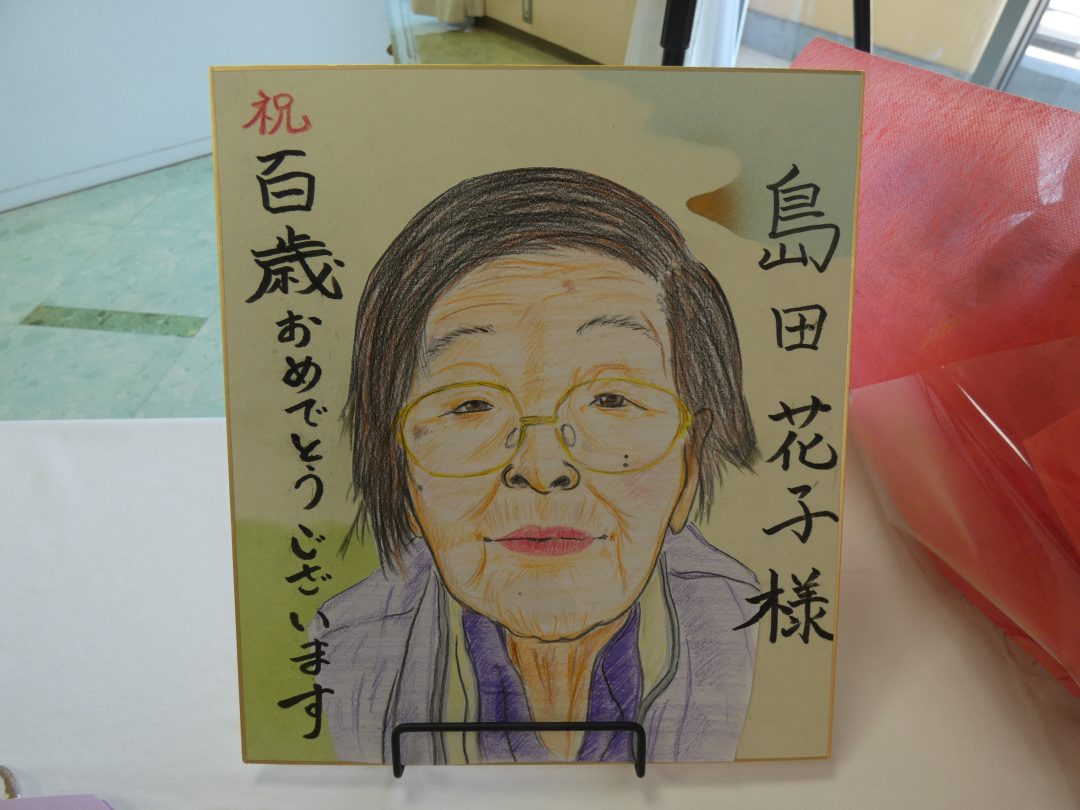 島田花子様
祝
百歳おめでとうございます